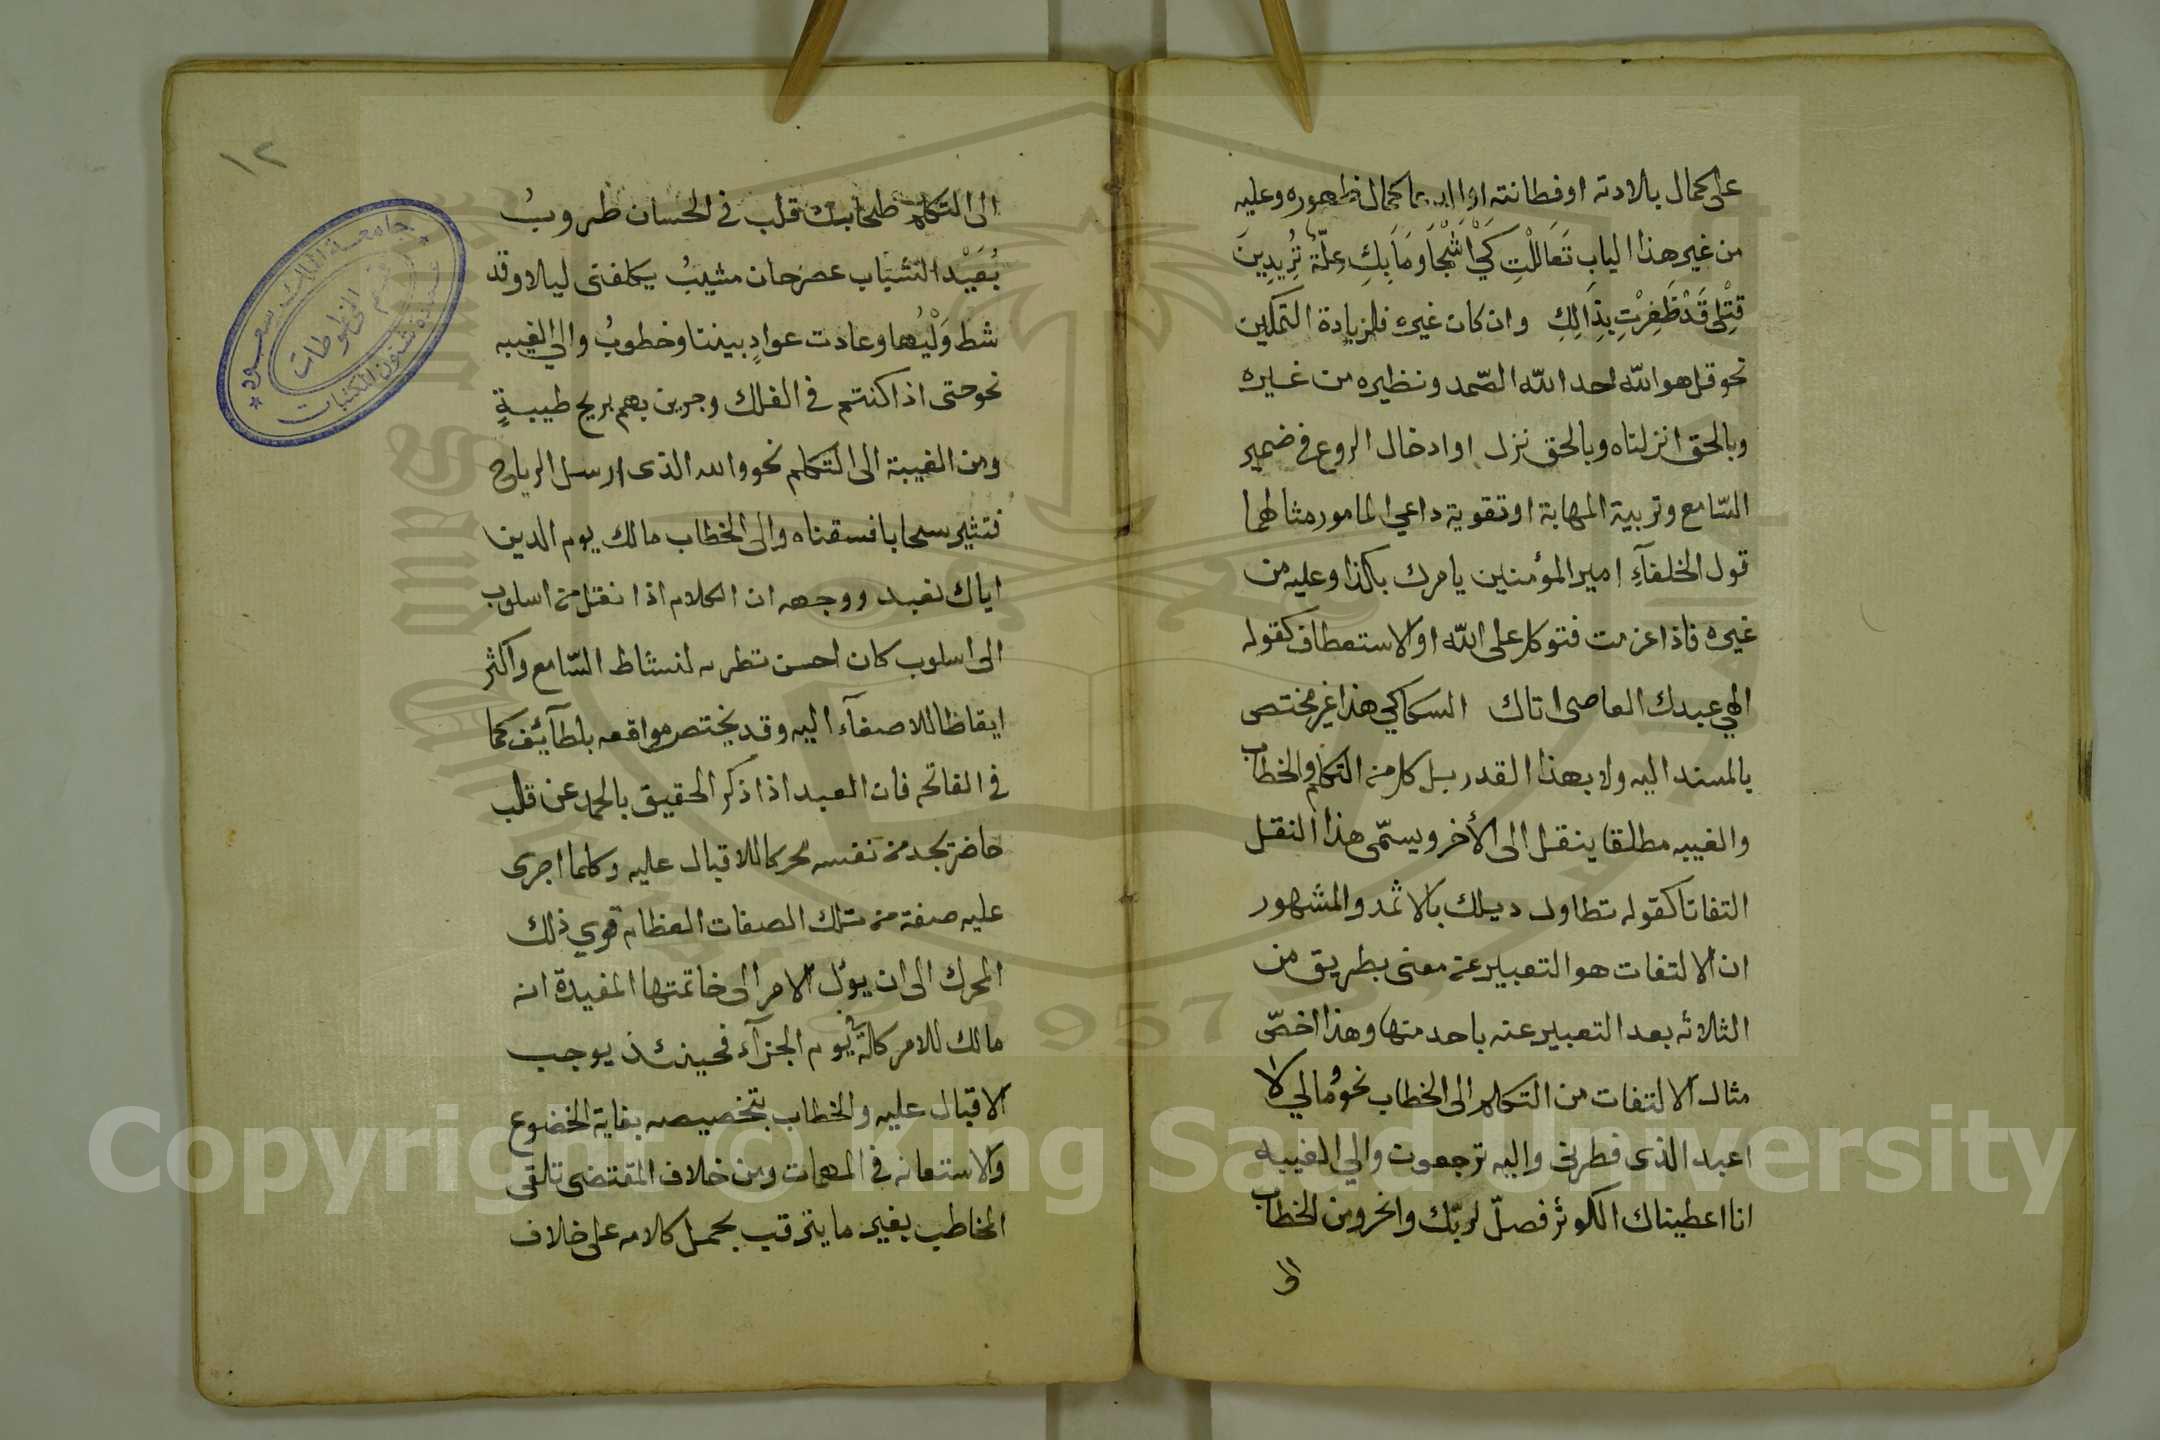 على كمال بلادته او فطانته او ادعا كمال ظهوره وعليه
من غير هذا الباب تَعَالَلْتِ كَيْ اَشْجَا وَمَا بِكِ عِلّةٌ تُرِيدِينَ
قَتْلِى قَدْ ظَفِرْتِ بِذَالِكِ وان كان غيره فلزيادة التمكين
نحو قل هو الله احد الله الصّمد ونظيره من غيره
وبالحق انزلناه وبالحق نزل او ادخال الروع في ضمير
السّامع وتربية المهابة او تقوية داعي المامور مثالهما
قول الخلفآءِ امير المؤمنين يامرك بكذا وعليه من
غيره فاذا عزمت فتوكل على الله او الاستعطاف كقوله
الهي عبدك العاصى اتاك السكاكي هذا غير مختص
بالمسند اليه ولا بهذا القدر بل كل من التكلم والخطاب
والغيبه مطلقا ينقل الى الأخر ويسمّى هذا النقل
التفاتا كقوله تطاول ديلك بالاثمد والمشهور
ان الالتفات هو التعبير عن معنى بطريق من
الثلاثه بعد التعبير عنه باحد منها وهذا اخصّ
مثال الالتفات من التكلم الى الخطاب نحو ومالي لا
اعبد الذى فطرني واليه ترجعون والي الغيبه
انا اعطيناك الكوثر فصلّ لربّك وانحر ومن الخطاب
الى
١٢
الى التكلم طحا بك قلب في الحسان طروبُ
بُعَيْد الشّباب عصر حان مشيبُ يكلفنى ليلا وقد
شط وَلْيُها وعادت عوادٍ بيننا وخطوبُ والي الغيبه
نحو حتى اذا كنتم في الفلك وجرين بهم بريح طيبةٍ
ومن الغيبة الى التكلم نحو والله الذى ارسل الرياح
فتثير سحابا فسقناه والى الخطاب مالك يوم الدين
اياك نعبد ووجهه ان الكلام اذا نقل من اسلوب
الى اسلوب كان احسن تطريه لنشاط السّامع واكثر
ايقاظا للاصغآء اليه وقد يختص مواقعه بلطآئف كما
في الفاتحه فان العبد اذا ذكر الحقيق بالحمد عن قلب
حاضر يجد من نفسه محركا للاقبال عليه وكلما اجرى
عليه صفة من تلك الصفات العظام قوي ذلك
المحرك الى ان يؤل الامر الى خاتمتها المفيدة انه
مالك للامر كله يوم الجزآء فحينئذ يوجب
الاقبال عليه والخطاب بتخصيصه بغاية الخضوع
والاستعانه في المهمات ومن خلاف المقتضى تلقى
المخاطب بغير ما يترقب بحمل كلامه على خلاف
جامعة الملك سعود
قسم المخطوطات
عمادة شئون المكتبات
1957
Copyright © King Saud University